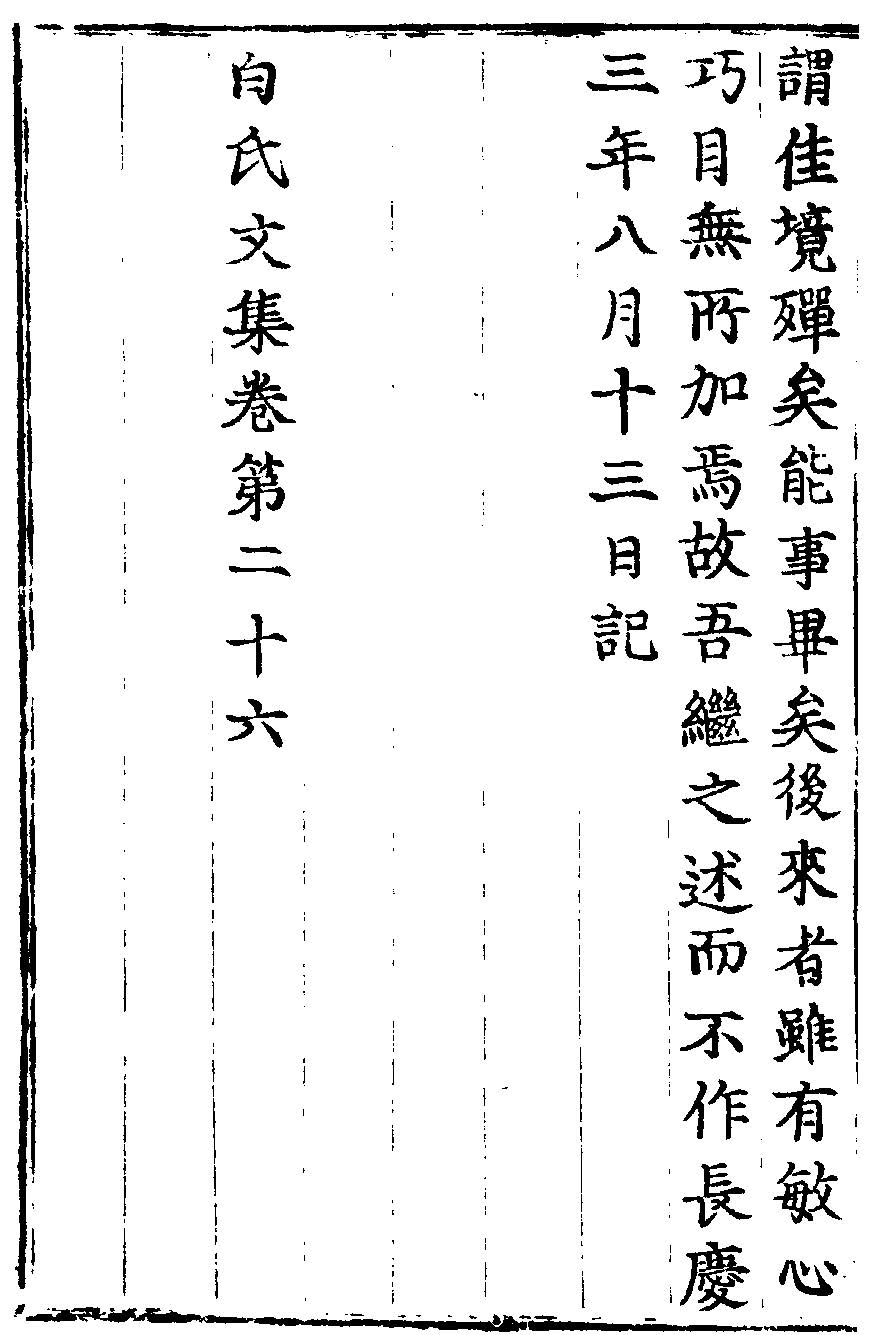 謂佳境殫矣能事畢矣後來者雖有敏心
巧目無所加焉故吾繼之述而不作長慶
三年八月十三日記
白氏文集卷第二十六